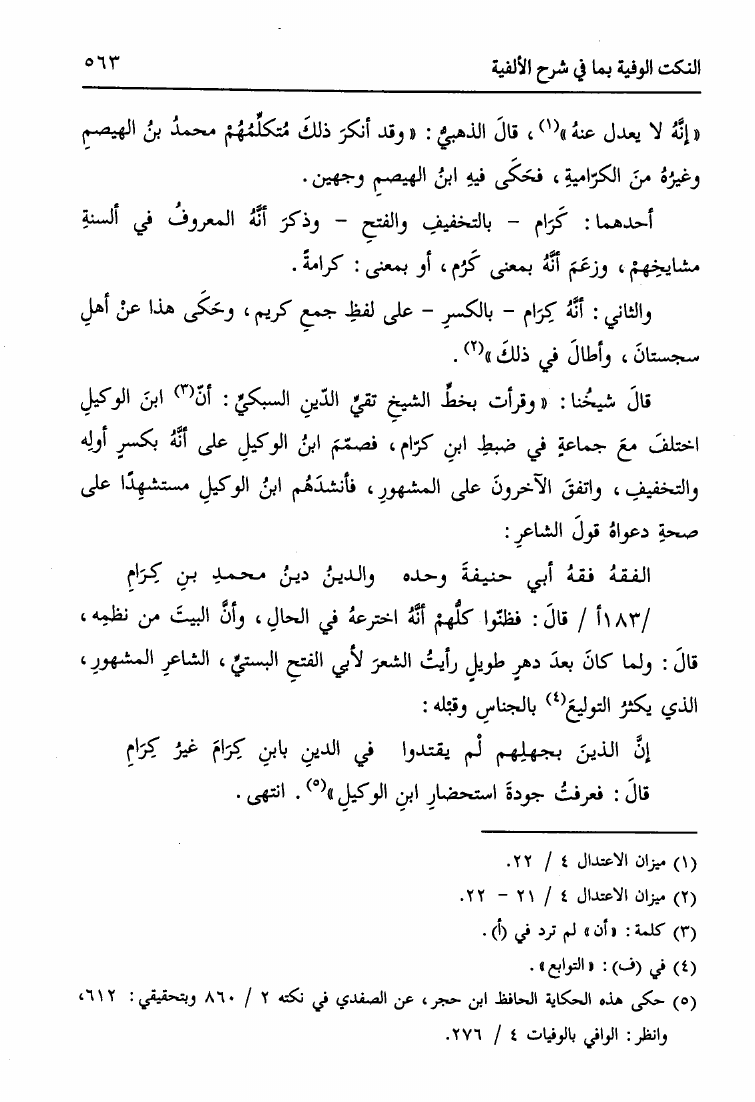 النكت الوفية بما في شرح الألفية ٥٦٣
«إنَّهُ لا يعدل عنهُ»(١)، قالَ الذهبيُّ: «وقد أنكرَ ذلكَ مُتكلِّمُهُمْ محمدُ بنُ الهيصمِ
وغيرُهُ منَ الكرّاميةِ، فحَكَى فيهِ ابنُ الهيصمِ وجهين.
أحدهما: كَرَام - بالتخفيفِ والفتحِ - وذكرَ أنَّهُ المعروفُ في ألسنةِ
مشايخِهِمْ، وزعَمَ أنَّهُ بمعنى كَرُم، أو بمعنى: كرامةً.
والثاني: أنَّهُ كِرَام - بالكسرِ - على لفظِ جمعِ كريم، وحَكَى هذا عنْ أهلِ
سجستانَ، وأطالَ في ذلكَ»(٢).
قالَ شيخُنا: «وقرأت بخطِّ الشيخِ تقيِّ الدّينِ السبكيِّ: أنّ(٣) ابنَ الوكيلِ
اختلفَ معَ جماعةٍ في ضبطِ ابنِ كرّام، فصمّمَ ابنُ الوكيلِ على أنَّهُ بكسرِ أولِه
والتخفيفِ، واتفقَ الآخرونَ على المشهورِ، فأنشدَهُم ابنُ الوكيلِ مستشهِدًا على
صحةِ دعواهُ قولَ الشاعرِ:
الفقهُ فقهُ أبي حنيفةَ وحده والدينُ دينُ محمدِ بنِ كِرَامِ
/١٨٣أ/ قالَ: فظنّوا كلُّهمْ أنَّهُ اخترعهُ في الحالِ، وأنَّ البيتَ من نظمِه،
قالَ: ولما كانَ بعدَ دهرٍ طويلٍ رأيتُ الشعرَ لأبي الفتحِ البستيِّ، الشاعرِ المشهورِ،
الذي يكثرُ التوليعَ(٤) بالجناسِ وقبْله:
إنَّ الذينَ بجهلِهم لْم يقتدوا في الدينِ بابنِ كِرَامَ غيرُ كِرَامِ
قالَ: فعرفتُ جودةَ استحضارِ ابنِ الوكيلِ»(٥). انتهى.
(١) ميزان الاعتدال ٤ / ٢٢.
(٢) ميزان الاعتدال ٤ / ٢١ - ٢٢.
(٣) كلمة: «أن» لم ترد في (أ).
(٤) في (ف): «التوابع».
(٥) حكى هذه الحكاية الحافظ ابن حجر، عن الصفدي في نكته ٢ / ٨٦٠ وبتحقيقي: ٦١٢،
وانظر: الوافي بالوفيات ٤ / ٢٧٦.